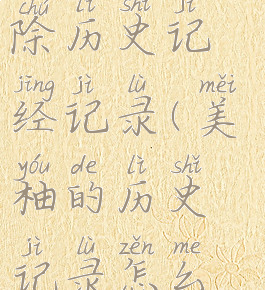 chú lì shǐ jì
除历史记
jīng jì lù měi
经记录(美
yóu de lì shǐ
柚的历史
jì lù zěn me
记录怎么